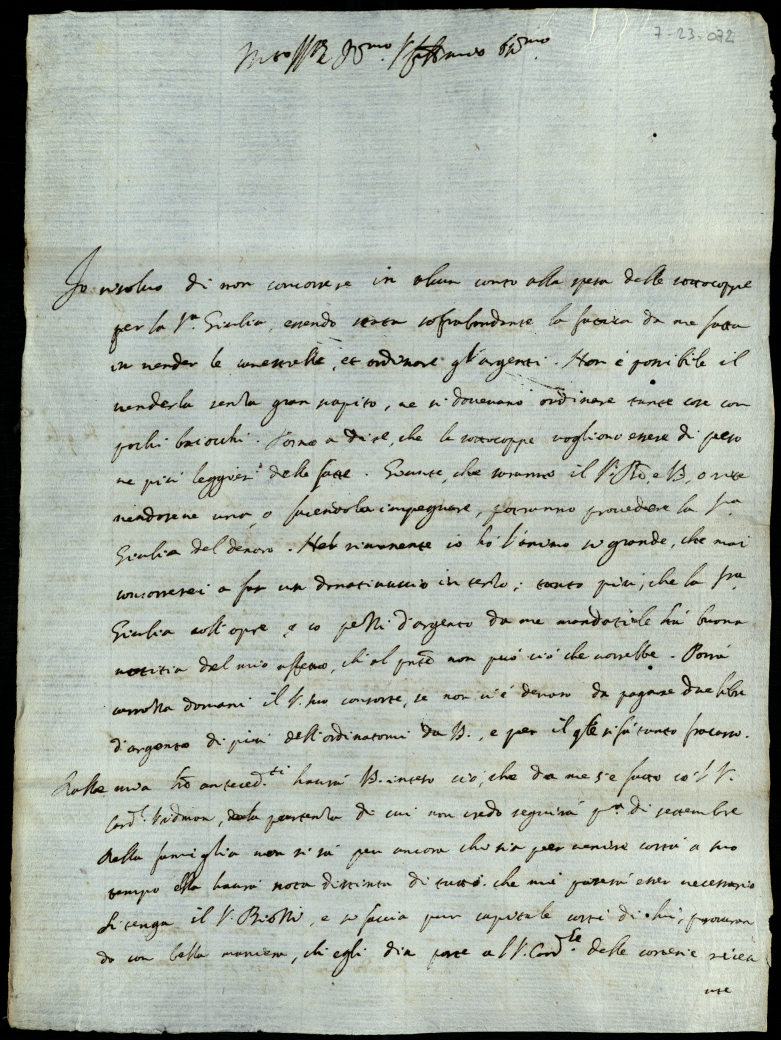 7-23-072
Io risoluo di non concorrere in alcun conto alla spesa delle sottocoppe
per la S.ra Giulia, essendo stata soprabondante la fatica da me fatta
in vender le canestrelle, et ordinare gl'argenti. Non è possibile il
venderla senza gran scapito, ne si doueuano ordinare tante cose con
pochi baiocchi. Torno a dire, che le sottocoppe vogliono essere di peso
ne più leggieri delle fatte. Giunte, che saranno il S. e B, o
uendosene una, o facendola impegnare, potranno prouedere la S.ra
Giulia del denaro. Nel rimanente io hò l'animo si grande, che mai
concorrerei a far un donatiuuccio in terzo; tanto più, che la S.ra
Giulia coll'opre, e co pezzi d'argento da me mandatile hà buona
notitia del mio affetto, che al pnte non può ciò che vorrebbe. Potrà
domani il S. suo consorte, se non ui è denaro da pagare due libre
d'argento di più dell'ordinatomi da B., e per il qle si fà tanto fracasso.
Dalle mie anteced.ti haurà B. inteso ciò, che da me s'è fatto co'l S.
Card. Vidman, della partenza di cui non credo seguirà p.a di settembre
Della famiglia non si sà per ancora chi sia per uenire costà a suo
tempo ella haurà nota distinta di tutto. che mi parerà esser necessario
Si tenga il S. , e si faccia pur capitale costì di lui, procuran
do con bella maniera, che egli dia parte al S. Card.le delle cortesie riceu
ute